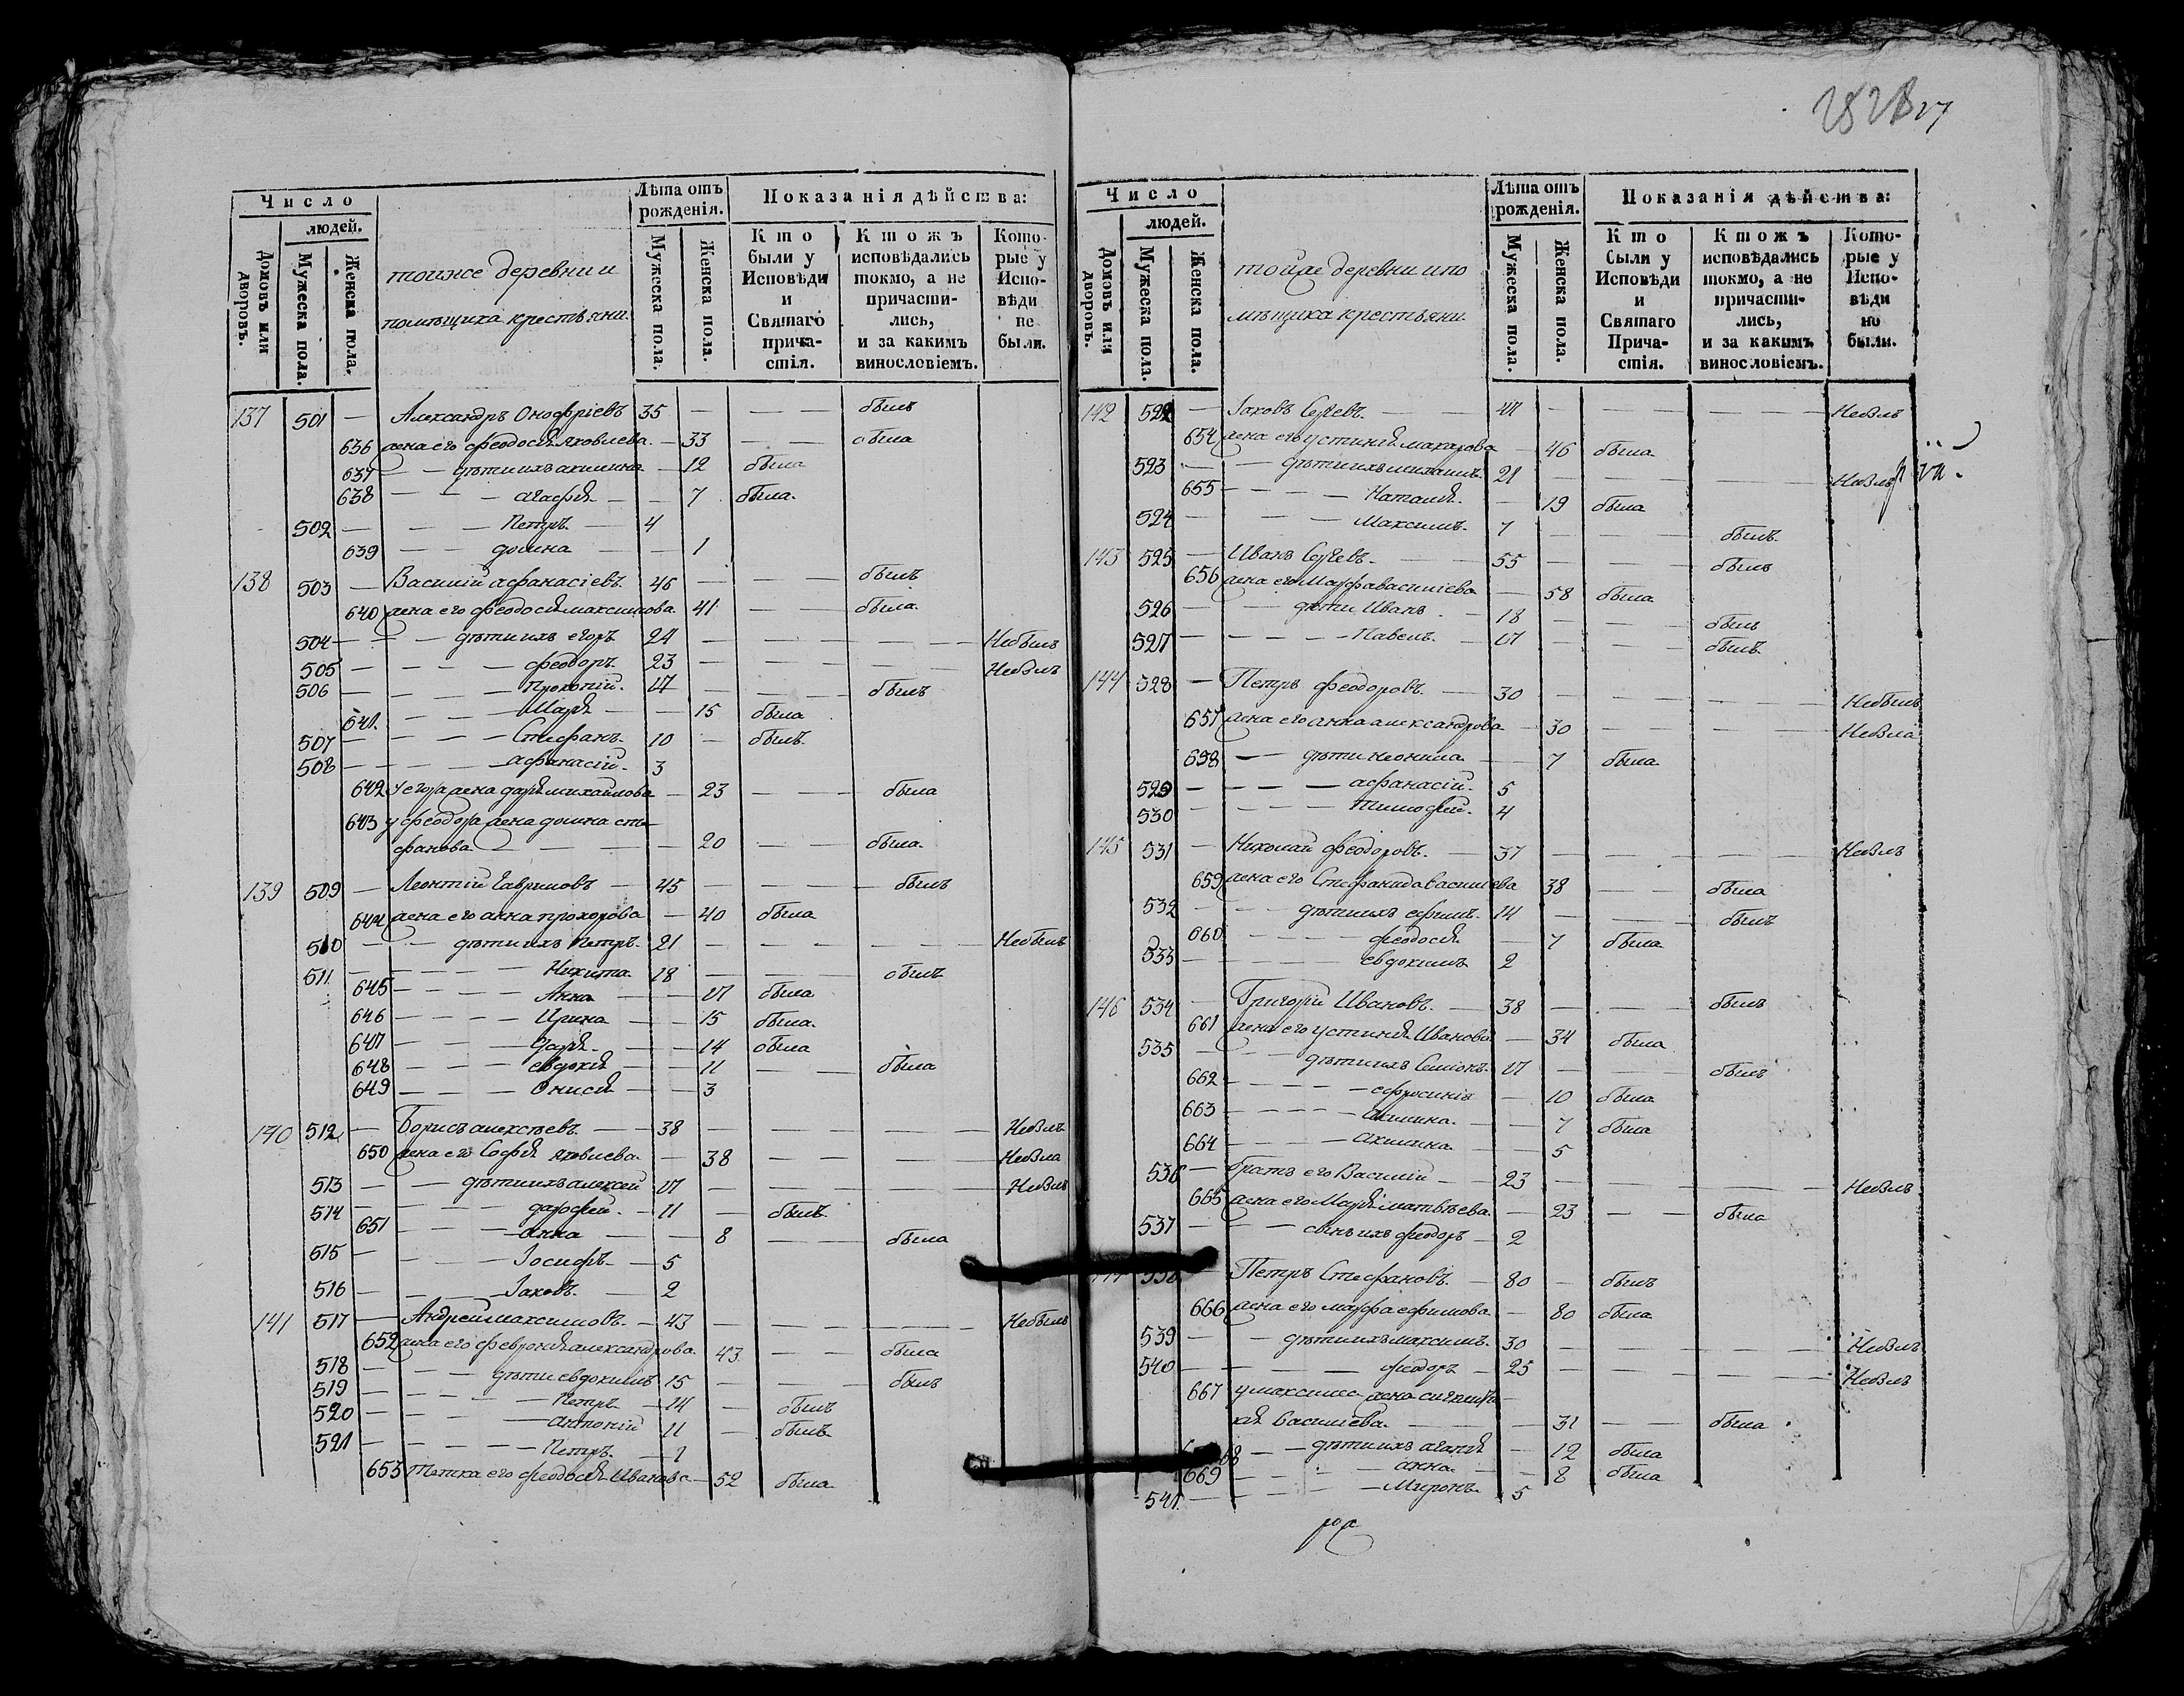 282 В 27
Число
людей.
Домовъ или дворовъ.
Мужеска пола.
Женска пола.
тоиже деревни и
помѣщика крестьяни.
Лѣта отъ рожденія.
Мужеска пола.
Женска пола.
Показанія дѣйства:
Кто были у Исповѣди и Святаго причастія.
Ктожъ исповѣдались токмо, а не причастились, и за какимъ винословіемъ.
Которые у Исповѣди не были.
137 501 — Александръ Онофріевъ 35 — — — былъ
636 жена его феодосія яковлева — 33 — — была
637 — — дѣти ихъ акилина — 12 была
638 — — — агафія — — 7 была
502 — — — — Петръ — 4
639 — — — домна — — 1
138 503 — Василій афанасіевъ 46 — — — былъ
640 жена его феодосія максимова 41 — — была
504 — — — дѣти ихъ егоръ 24 — — — — — Небылъ
505 — — — — феодоръ 23 — — — — Небылъ
506 — — — — Прокопій 17 — — — былъ
641 — — — Марія — — 15 была
507 — — — — Стефанъ 10 — былъ
508 — — — — афанасій 3
642 У егора жена дарія михайлова — 23 — — — была
643 у феодора жена домна сте-
фанова — — — — 20 — — была
139 509 — Леонтій Гавриловъ — 45 — — — — былъ
644 жена его анна прохорова — 40 была
510 — — дѣти ихъ Петръ 21 — — — — — Небылъ
511 — — — — Никита 18 — — — былъ
645 — — — — Анна — — 17 была
646 — — — — Ирина — — 15 была
647 — — — дарія — — 14 была
648 — — — евдокія — — 11 — — была
649 — — — Онисія — — 3
140 512 — Борисъ алексѣевъ — — 38 — — — — — Небылъ
650 жена его Софія яковлева — 38 — — — — Небыла
513 — — дѣти ихъ алексей 17 — — — — — Небылъ
514 — — — — дорофей — 11 — былъ
651 — — — анна — — 8 — — была
515 — — — — Іосифъ — 5
516 — — — — Іаковъ — 2
141 517 — Андрей максимовъ — 43 — — — — — Небылъ
652 жена его феврония александрова 43 — — была
518 — — — дѣти евдокимъ 15 — — — былъ
519 — — — — Петръ — 14 — былъ
520 — — — — антоній 11 — былъ
521 — — — — Петръ — 1
653 Тетка его феодосія Иванова — 52 была
Число
людей.
Домовъ или дворовъ.
Мужеска пола.
Женска пола.
тойже деревни и по
мѣщика крестьяни.
Лѣта отъ рожденія.
Мужеска пола.
Женска пола.
Показанія дѣйства:
Кто были у Исповѣди и Святаго Причастія.
Ктожъ исповѣдались токмо, а не причастились, и за какимъ винословіемъ.
Которые у Исповѣди не были.
142 522 — Іаковъ Сергѣевъ — — 47 — — — — — Небылъ
654 жена его устинія макарова — 46 была
523 — — дѣти ихъ михаилъ 21 — — — — — Небылъ
655 — — — — Наталія — 19 была
524 — — — — Максимъ 7 — — — былъ
143 525 — Иванъ Сергѣевъ — — 55 — — — былъ
656 жена его Марфа василіева — 58 была
526 — — — дѣти Иванъ — 18 — — — былъ
527 — — — — — Павелъ — 17 — — — былъ
144 528 — Петръ феодоровъ — 30 — — — — — Небылъ
657 жена его анна александрова — 30 — — — — Небыла
658 — — дѣти неонила — — 7 была
529 — — — — афанасій 5
530 — — — — тимофей 4
145 531 — Николай феодоровъ — 37 — — — — — Небылъ
659 жена его Стефанида василіева 38 — — была
532 — — — дѣти ихъ ефимъ 14 — — — былъ
660 — — — — феодосія — 7 была
533 — — — — евдокимъ 2
146 534 — Григорій Ивановъ — 38 — — — былъ
661 жена его устинія Иванова — 34 была
535 — — — дѣти ихъ Симіонъ 17 — — — былъ
662 — — — — ефросинія — 10 была
663 — — — — акилина — — 7 была
664 — — — — акилина — — 5
536 — братъ его Василій — — 23 — — — — — Небылъ
665 жена его Марія матвѣева — 23 — — была
537 — — — сынъ ихъ феодоръ — 2
538 — Петръ Стефановъ — 80 — былъ
666 жена его марфа ефимова — 80 была
539 — — дѣти ихъ максимъ 30 — — — — — Небылъ
540 — — — — феодоръ — 25 — — — — — Небылъ
667 у максима жена
Василіева — — — 31 — — была
— — дѣти ихъ агапія — 12 была
669 — — — — анна — — 8 была
541 — — — — — Миронъ 5